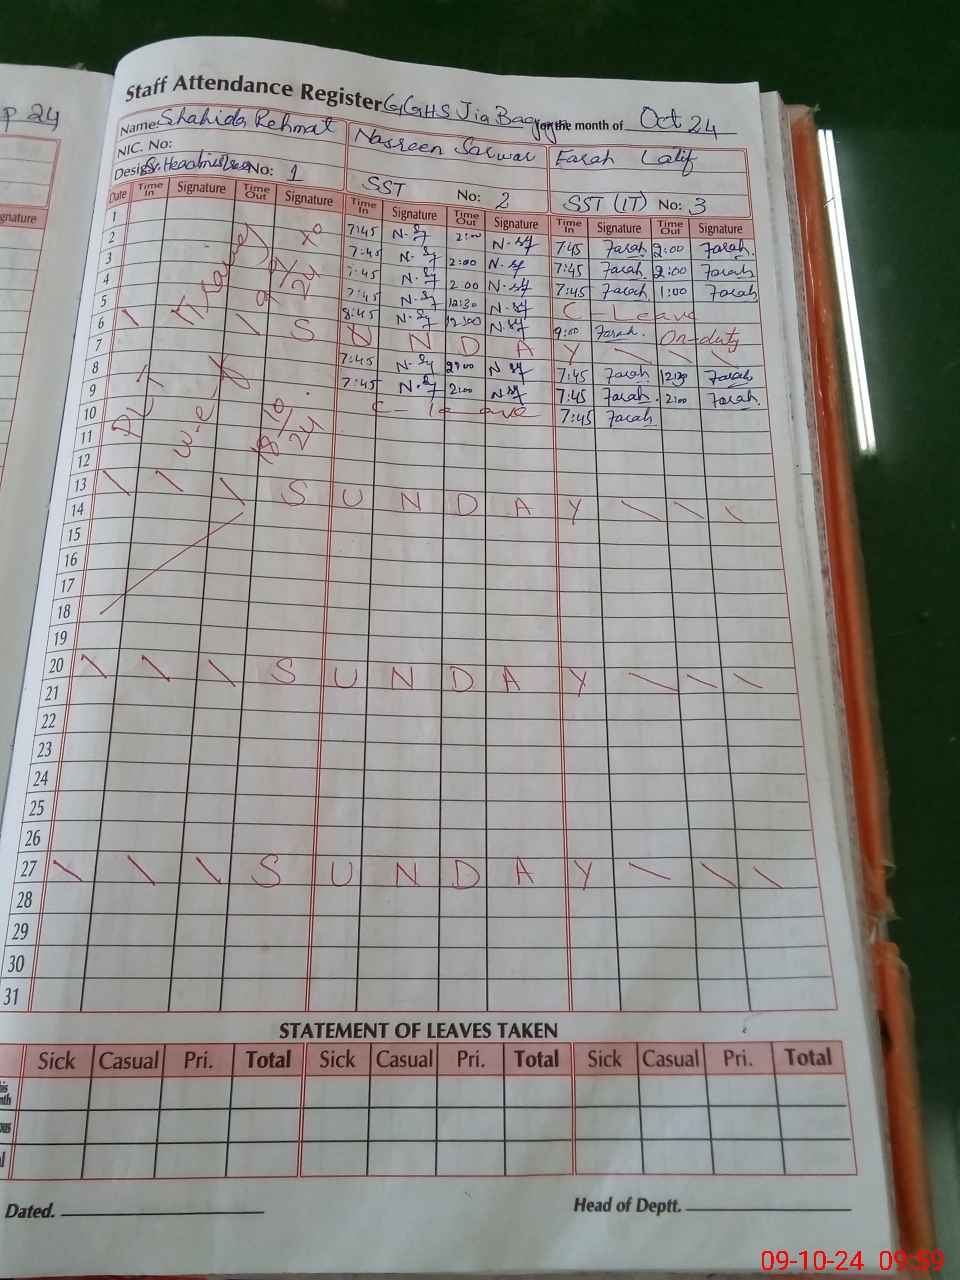 p 24
Staff Attendance Register GGHS Jia Bagga for the month of Oct 24
Name: Shahida Rehmat Nasreen Sarwar Farah Latif
NIC. No:
Desig: Sr. Headmistress No: 1 SST No: 2 SST (IT) No: 3
gnature
Date Time In Signature Time Out Signature Time In Signature Time Out Signature Time In Signature Time Out Signature
1 7:45 N-Sf 2:00 N-Sf 7:45 Farah. 2:00 Farah.
2 7:45 N-Sf 2:00 N-Sf 7:45 Farah. 2:00 Farah
3 7:45 N-Sf 2:00 N-Sf 7:45 Farah 1:00 Farah
4 7:45 N-Sf 12:30 N-Sf C - Leave
5 8:45 N-Sf 12:00 N-Sf 9:00 Farah. On-duty
6 S U N D A Y
7 7:45 N-Sf 2:00 N-Sf 7:45 Farah 12:30 Farah
8 7:45 N-Sf 2:00 N-Sf 7:45 Farah. 2:00 Farah.
9 C - leave 7:45 Farah.
10
11
12
13 S U N D A Y
14
15
16
17
18
19
20 S U N D A Y
21
22
23
24
25
26
27 S U N D A Y
28
29
30
31
w.e.f
18/10/24
STATEMENT OF LEAVES TAKEN
Sick Casual Pri. Total Sick Casual Pri. Total Sick Casual Pri. Total
Dated. Head of Deptt.
09-10-24 09:59